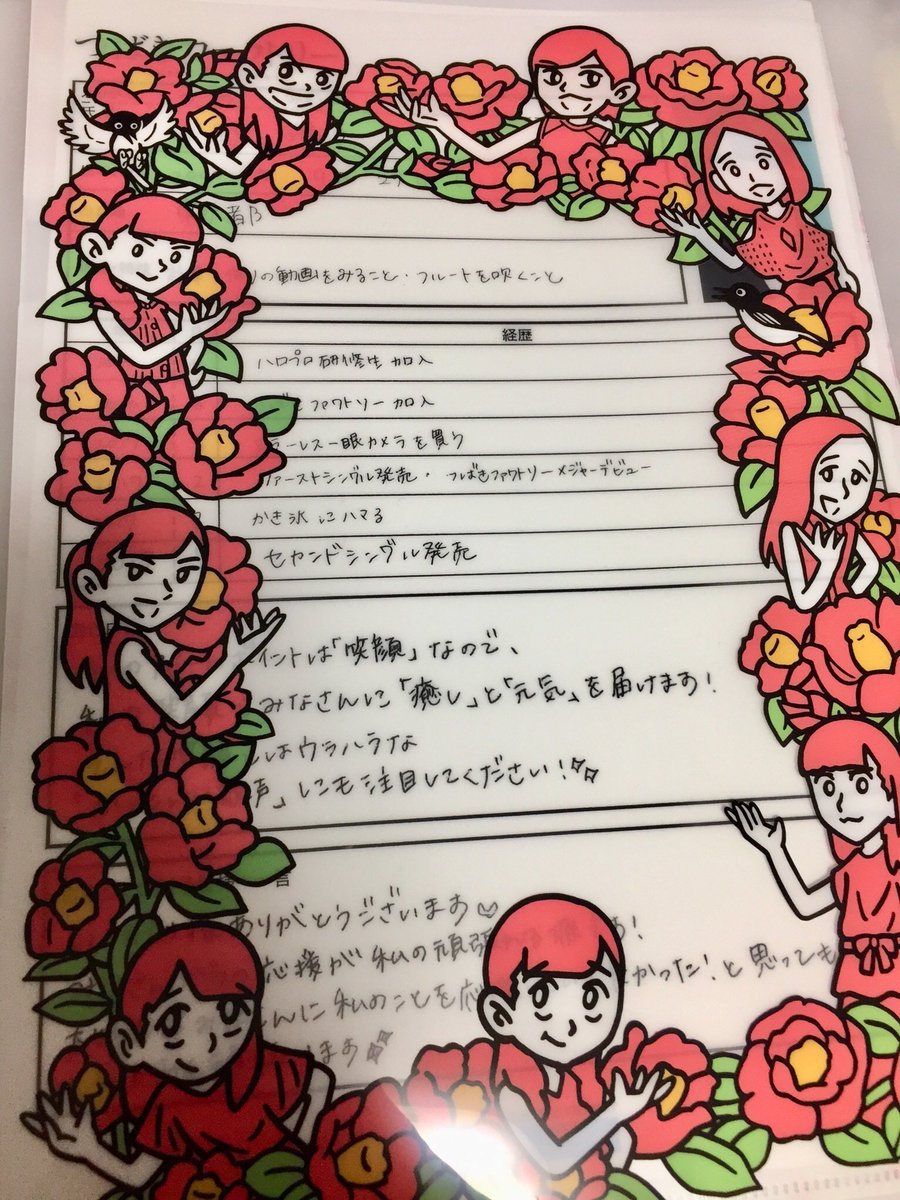 都
の動画をみること・フルートを吹くこと
経歴
ハロプロ研修生 加入
ファクトリー加入
ーレス一眼カメラを買う
ファーストシングル発売・つばきファクトリーメジャーデビュー
かき氷にハマる
セカンドシングル発売
イントは「笑顔」なので、
みなさんに「癒し」と「元気」を届けます!
はウラハラな
声」にも注目してください!
言
ありがとうございます♡
応援が私の頑張
んに私のことを応 かった!と思っても
ます